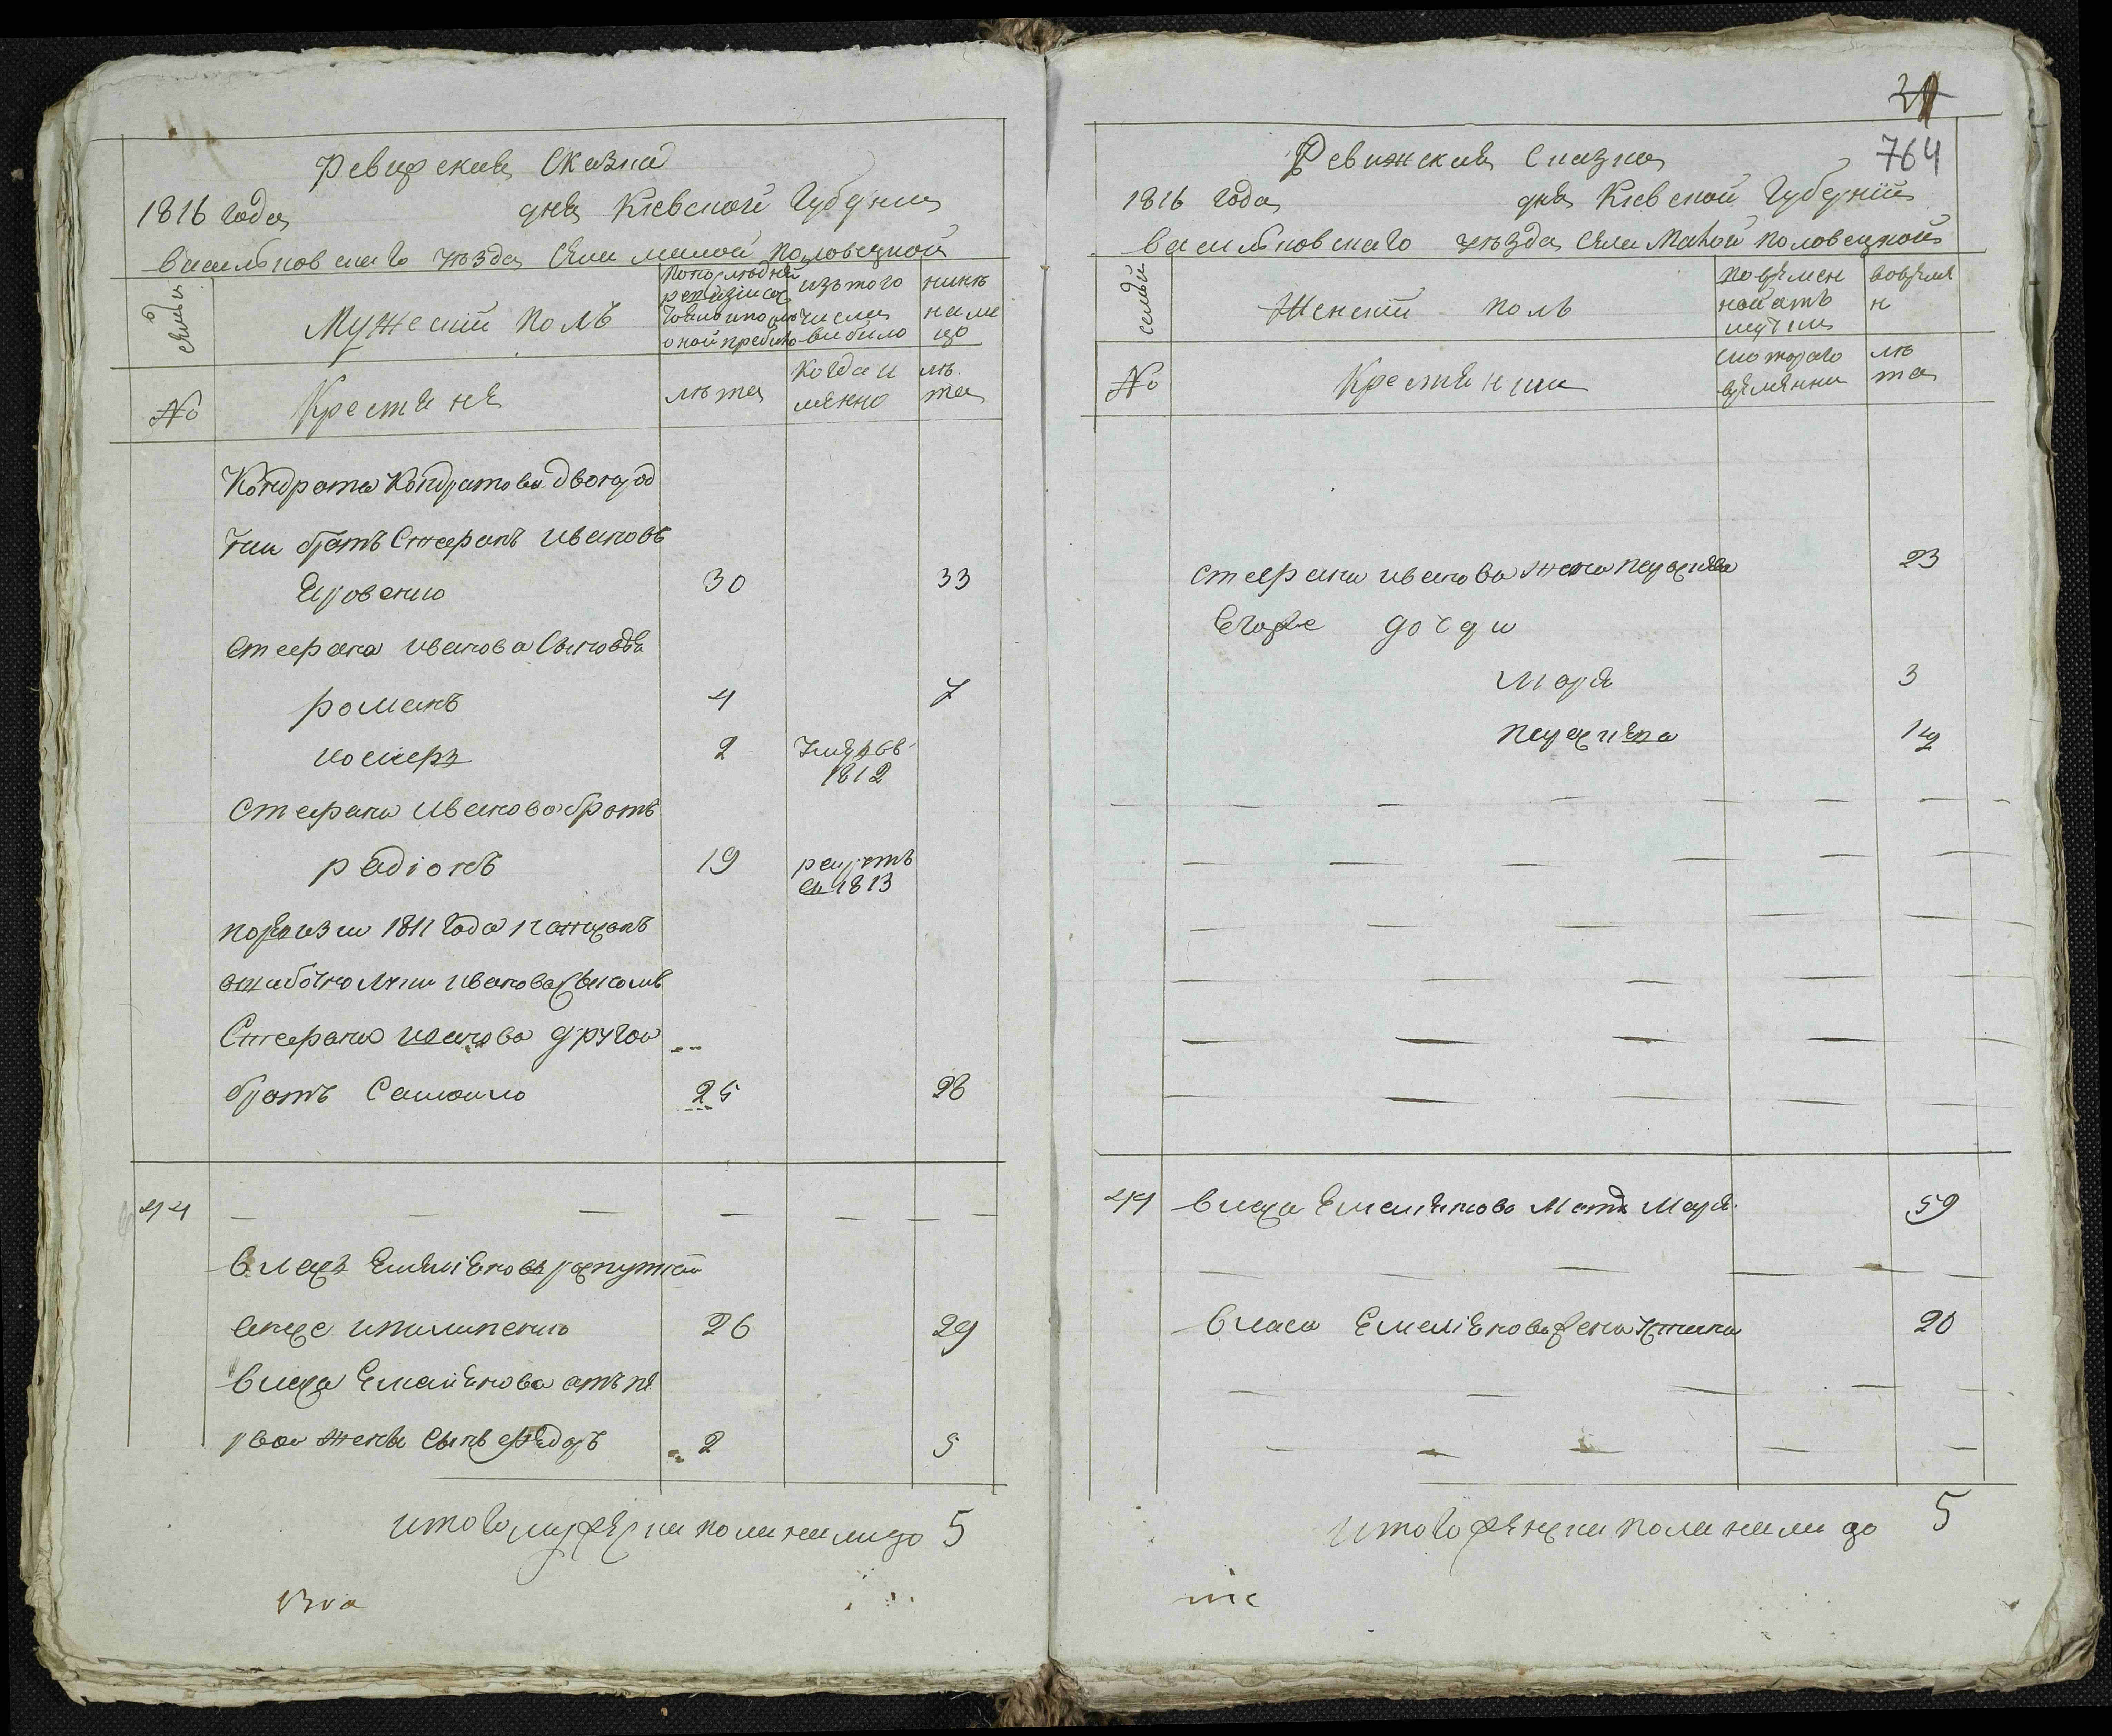 Ревизская Сказка
1816 года дня Киевской Губернии
васильковского уѣзда села малой половецкой
семьи
Мужеский полъ
По последней ревизии состояло и после оной прибыло
изъ того числа выбыло
нынѣ на лицо
№
Крестяне
лѣта
когда именно
лѣта
Кондрата Кондратова двоюрод
ный братъ Стефанъ ивановъ
Яровенко 30 33
Стефана иванова Сыновья
романъ 4 7
иосифъ 2 умеръ въ 1812
Стефана иванова братъ
радіонъ 19 рекрутъ 1813
по ревизии 1811 года написанъ
ошибочно иванова сыномъ
Стефана иванова другой
братъ Самойло 25 28
44
власъ Емеліяновъ
26 29
власа Емелиянова отъ пе
рвой жены Сынъ федоръ 2 5
итого мужеска пола на лицо 5
31
764
Ревижская Сказка
1816 года дня Киевской Губернии
васильковского уѣзда села Малой половецкой
семьи
Женский полъ
во временной отлучки
во время н
№
Крестянки
с которого времянни
лѣта
Стефана иванова жена параскева 23
Его же дочери
Маря 3
параскева 1½
44 власа Емелиянова Мать Маря 59
власа Емеліянова жена 20
итого женска пола на лицо 5